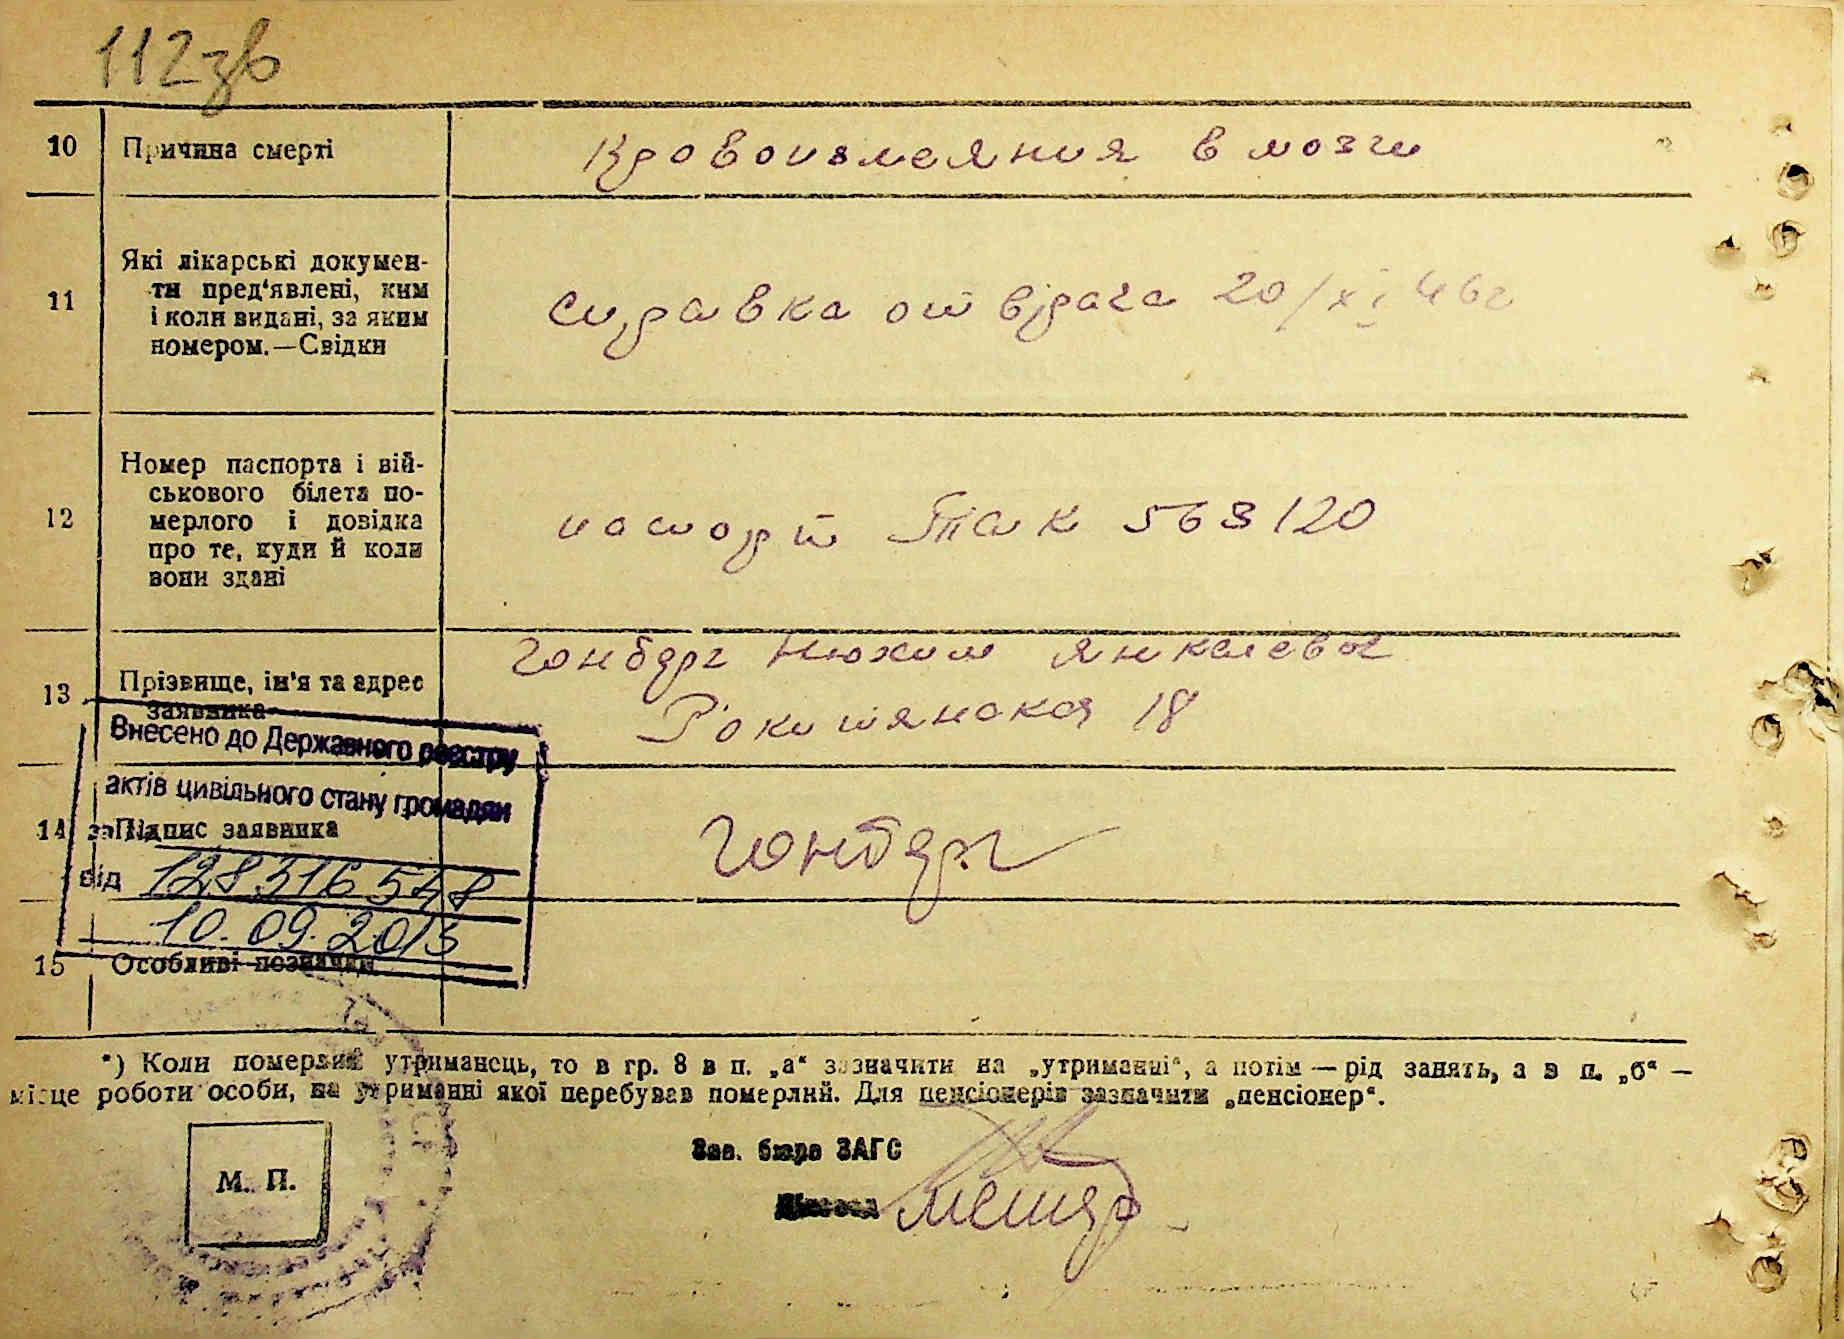 112зв
10 Причина смерті Кровоизмеяния в мозги
11 Які лікарські докумен-
ти пред‘явлені, ким
і коли видані, за яким
номером.—Свідки
справка от врача 20/XI 46г
12 Номер паспорта і вій-
ськового білета по-
мерлого і довідка
про те, куди й коли
вони здані
паспорт 563120
13 Прізвище, ім'я та адрес
заявника
Гонбарг Нюхим Янкелевич
Рокитянская 18
Внесено до Державного реєстру
актів цивільного стану громадян
14 Підпис заявника Гонбарг
за №
від 128316548
10.09.2013
15 Особливі позначки
*) Коли померлий утриманець, то в гр. 8 в п. „а“ зазначити на „утриманні“, а потім — рід занять, а в п. „б“ —
місце роботи особи, на утриманні якої перебував померлий. Для пенсіонерів зазначити „пенсіонер“.
М. П.
Зав. бюро ЗАГС